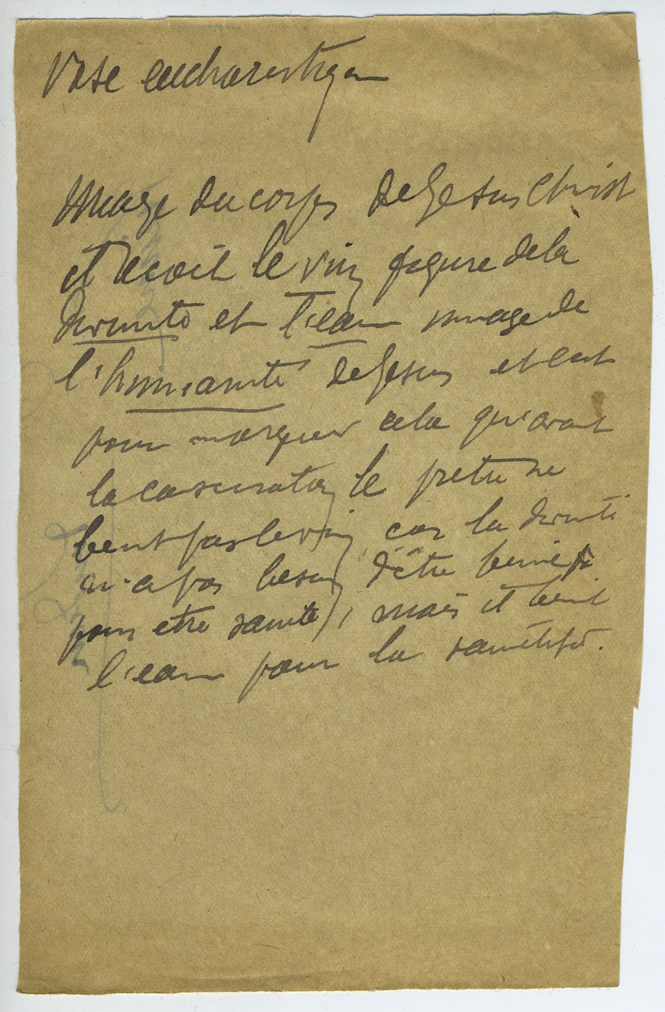 Vase eucharistique
Image du corps de Jesus Christ
et recoit le vin figure de la
divinité et l'eau image de
l'humanité de Jesus et c'est
pour marquer cela qu'avant
la consecration le pretre ne
benit pas le vin, car la divinité
n'a pas besoin d'être benie
pour etre sainte, mais il benit
l'eau pour la sanctifier.